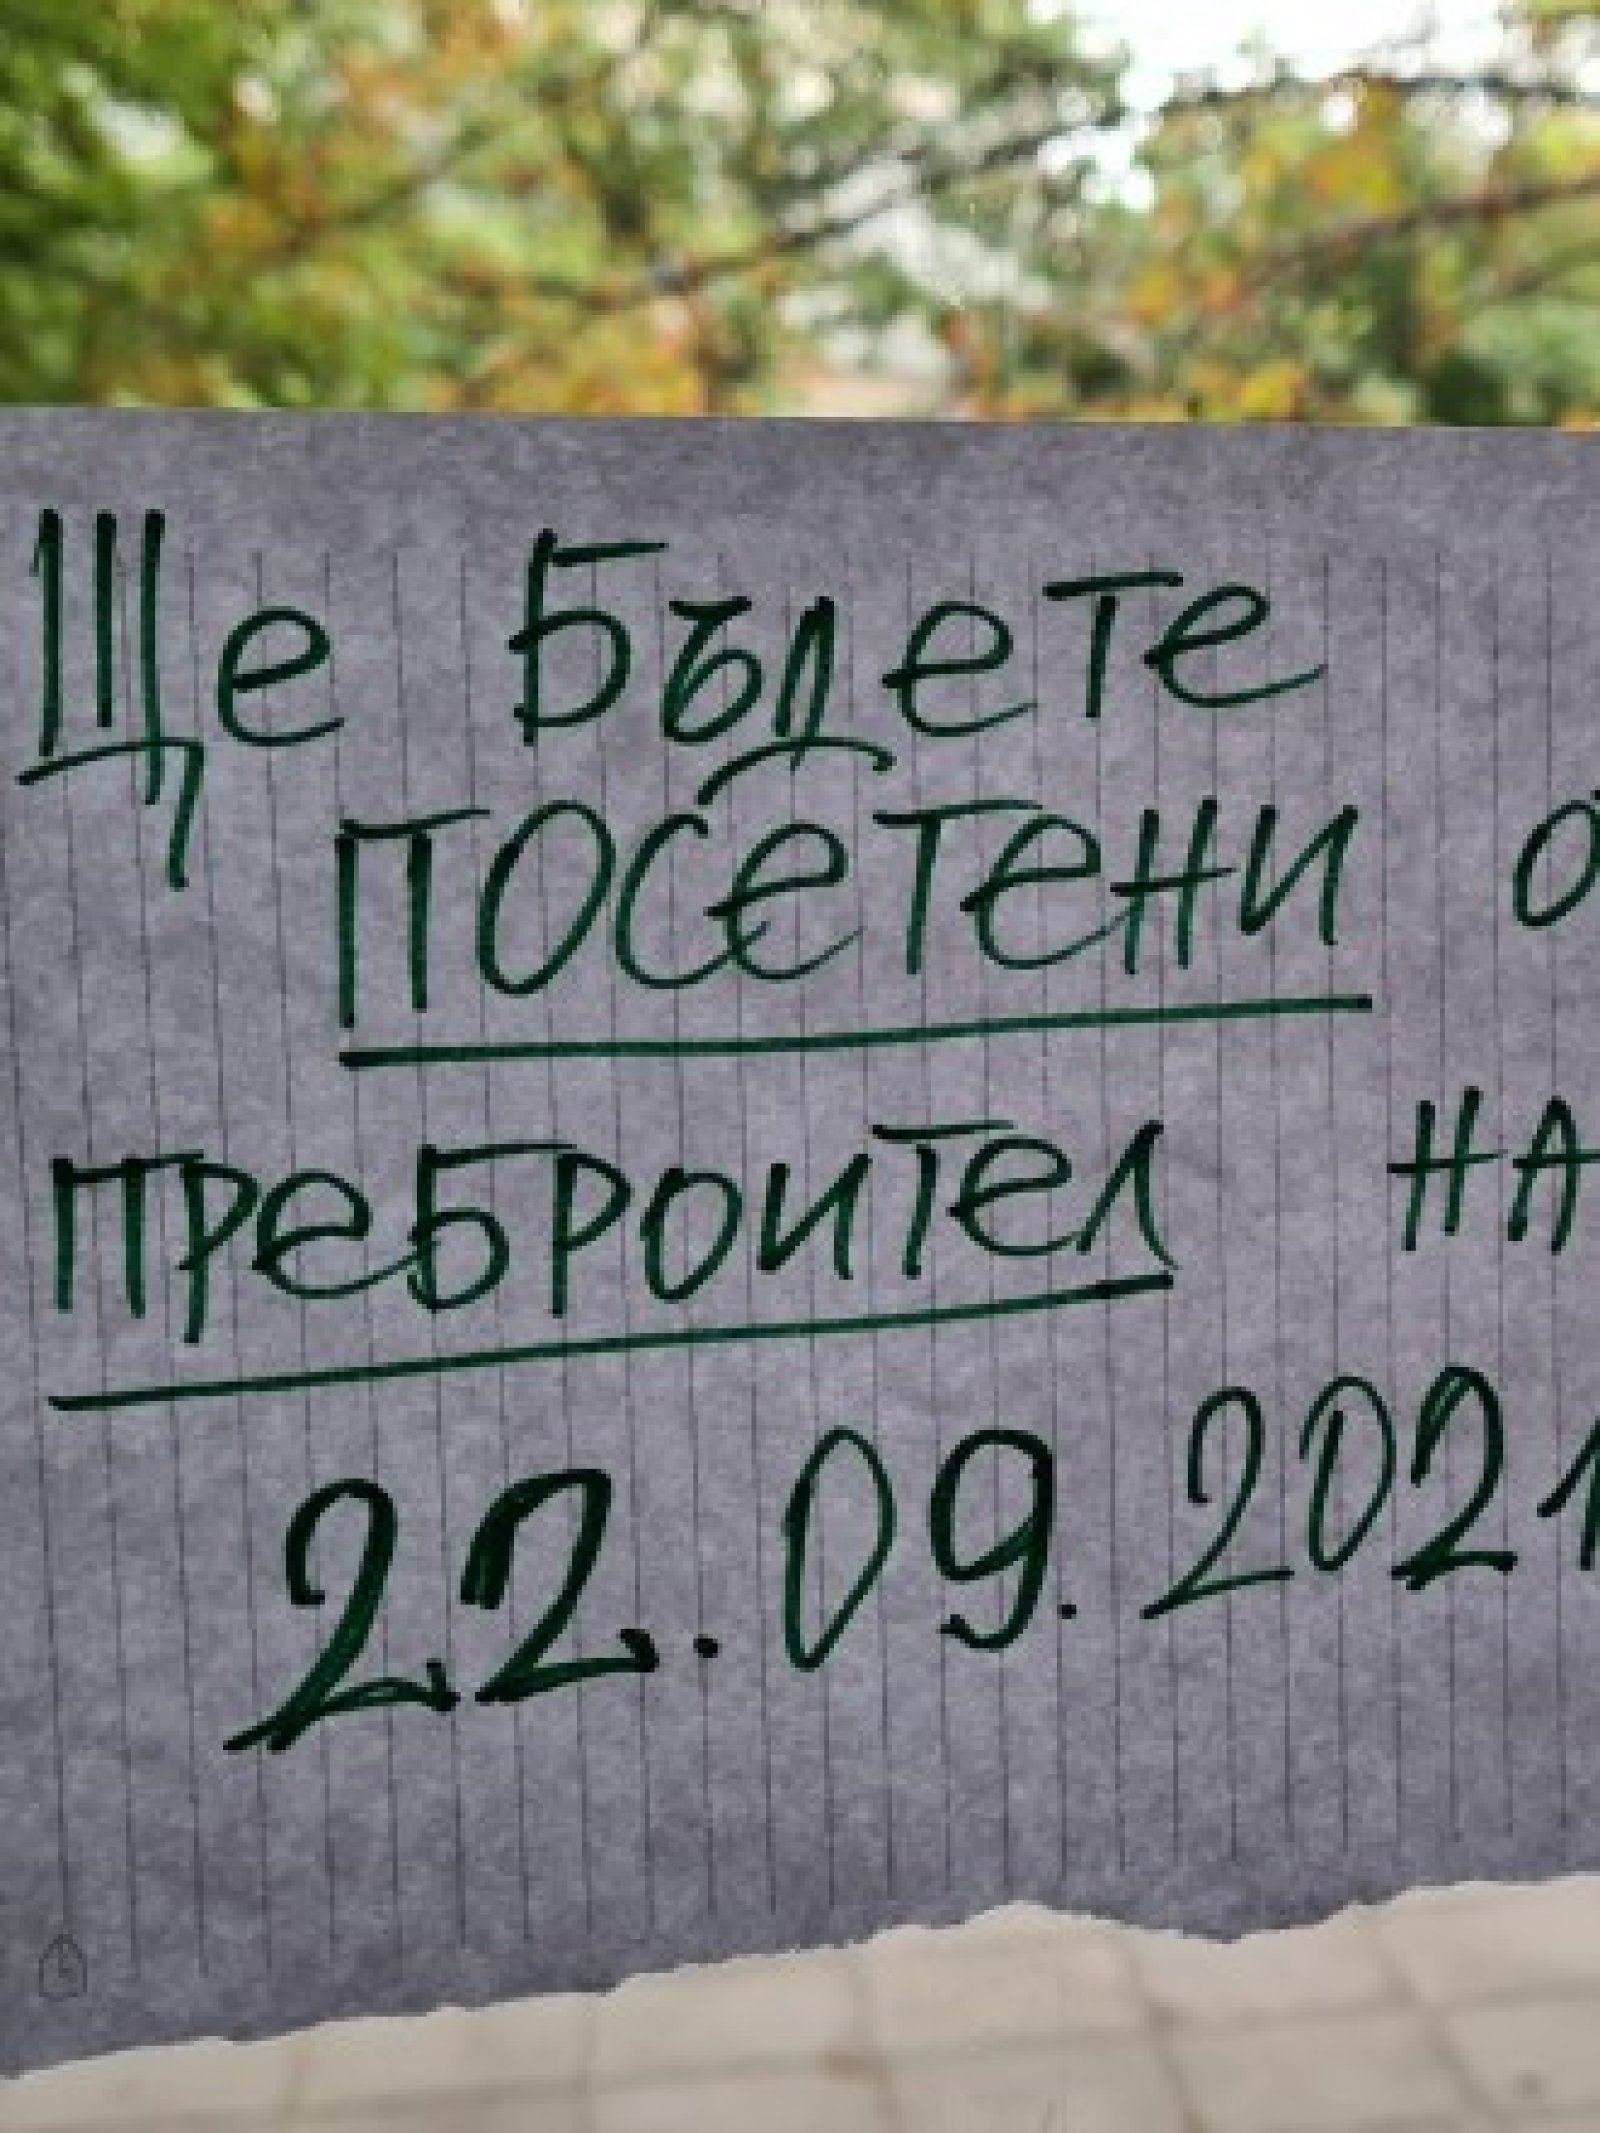 Ще бъдете
посетени о
преброител на
22.09.2021